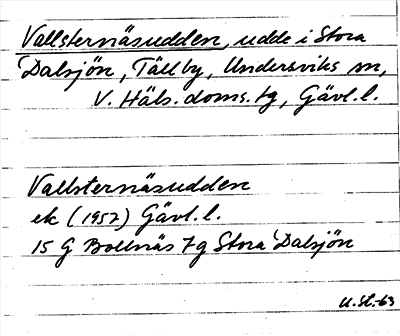 Vallsternäsudden, udde i Stora
Dalsjön, Tällby, Undersviks sn,
V. Häls. doms. tg, Gävl. l.
Vallsternäsudden
ek (1957) Gävl. l.
15 G Bollnäs 7g Stora Dalsjön
U.St.-63